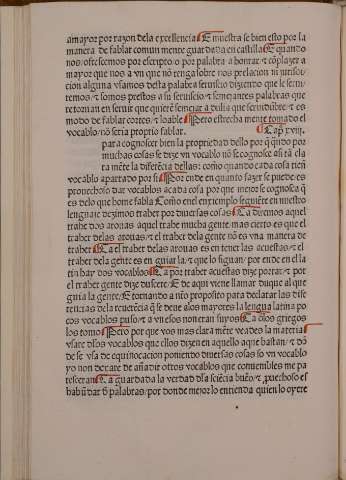 amayor por razon dela excellencia E muestra se bien esto por la
manera de fablar comun mente guardada en castilla E quando
nos ofrescemos por escripto o por palabra a honrar ⁊ cõplazer a
mayor que nos a vn que nõ tenga sobre nos prelacion ni jurisdi
cion alguna vsamos desta palabra seruicio diziendo que le serui
remos ⁊ somos prestos a su seruicio ⁊ semejantes palabras que
retornan en seruir que quierẽ semejar a dulia que es seruidũbre ⁊ es
modo de fablar cortes ⁊ loable Pero estrecha mente tomado el
vocablo nõ seria proprio fablar. Capº xviij.
para cognoscer bien la propriedad delo por q̃ quando por
muchas cosas se dize vn vocablo nõ se cognosce asi tã cla
ra mẽte la diferẽcia dellas: como quando cada cosa tien
vocablo apartado por si Por ende en quanto fazer se puede es
prouechoso dar vocablos acada cosa por que mejor se cognosca q̃
es delo que home fabla Como enel enxemplo seguiẽte en nuestro
lenguaje dezimos traher por diuersas cosas Ca diremos aquel
trahe dos arouas aquel trahe mucha gente mas cierto es que el
traher delas arouas ⁊ el traher dela gente nõ es vna manera de
traher Ca el traher delas arouas es en tener las acuestas ⁊ el
traher dela gente es en guiar la ⁊ que lo siguan por ende en el la
tin hay dos vocablos Ca por traher acuestas dize portar ⁊ por
el traher dela gente dize ducere E de aqui viene llamar duque al que
guia la gente E tornando a nro proposito para declarar las dife
rencias dela reuerẽcia q̃ se deue alos mayores la lengua latina po
cos vocablos puso ⁊ a vn esos non eran suyos Ca d'los griegos
los tomo Pero por que vos mas clara mẽte veades la materia
vsare d'los vocablos que ellos dizen en aquello aque bastan ⁊ dõ
de se vsa de equiuocacion poniendo diuersas cosas so vn vocablo
yo non dexare de añadir otros vocablos que conuenibles me pa
resceran Ca guardada la verdad d'la sciẽcia buẽo ⁊ prouechoso es
habũdar d' palabras por donde mejor lo entienda quien lo oyere